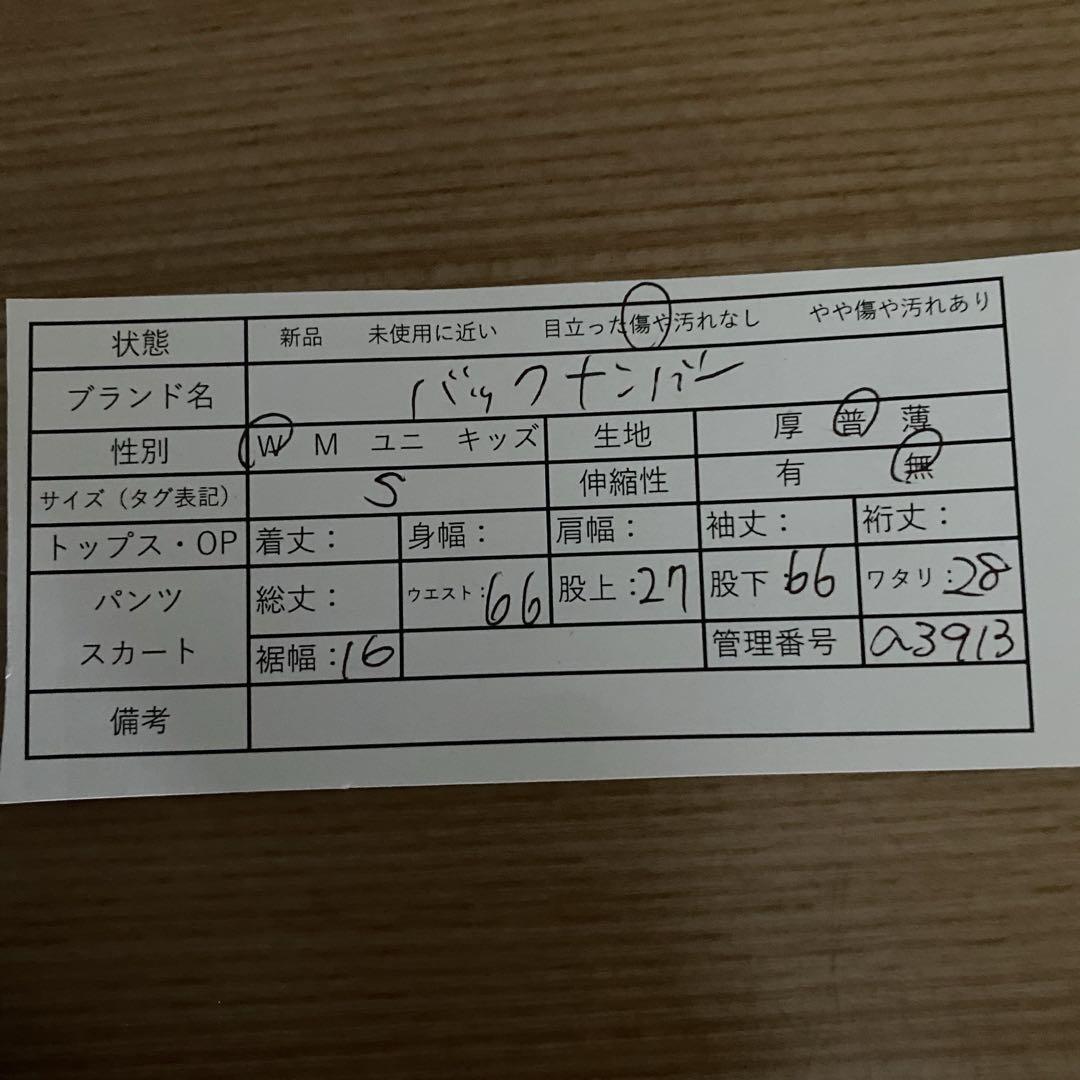 状態 新品 未使用に近い 目立った傷や汚れなし やや傷や汚れあり
ブランド名 バックナンバー
性別 W M ユニ キッズ 生地 厚 普 薄
サイズ（タグ表記） S 伸縮性 有 無
トップス・OP 着丈： 身幅： 肩幅： 袖丈： 裄丈：
パンツ 総丈： ウエスト：66 股上：27 股下：66 ワタリ：28
スカート 裾幅：16 管理番号 a3913
備考